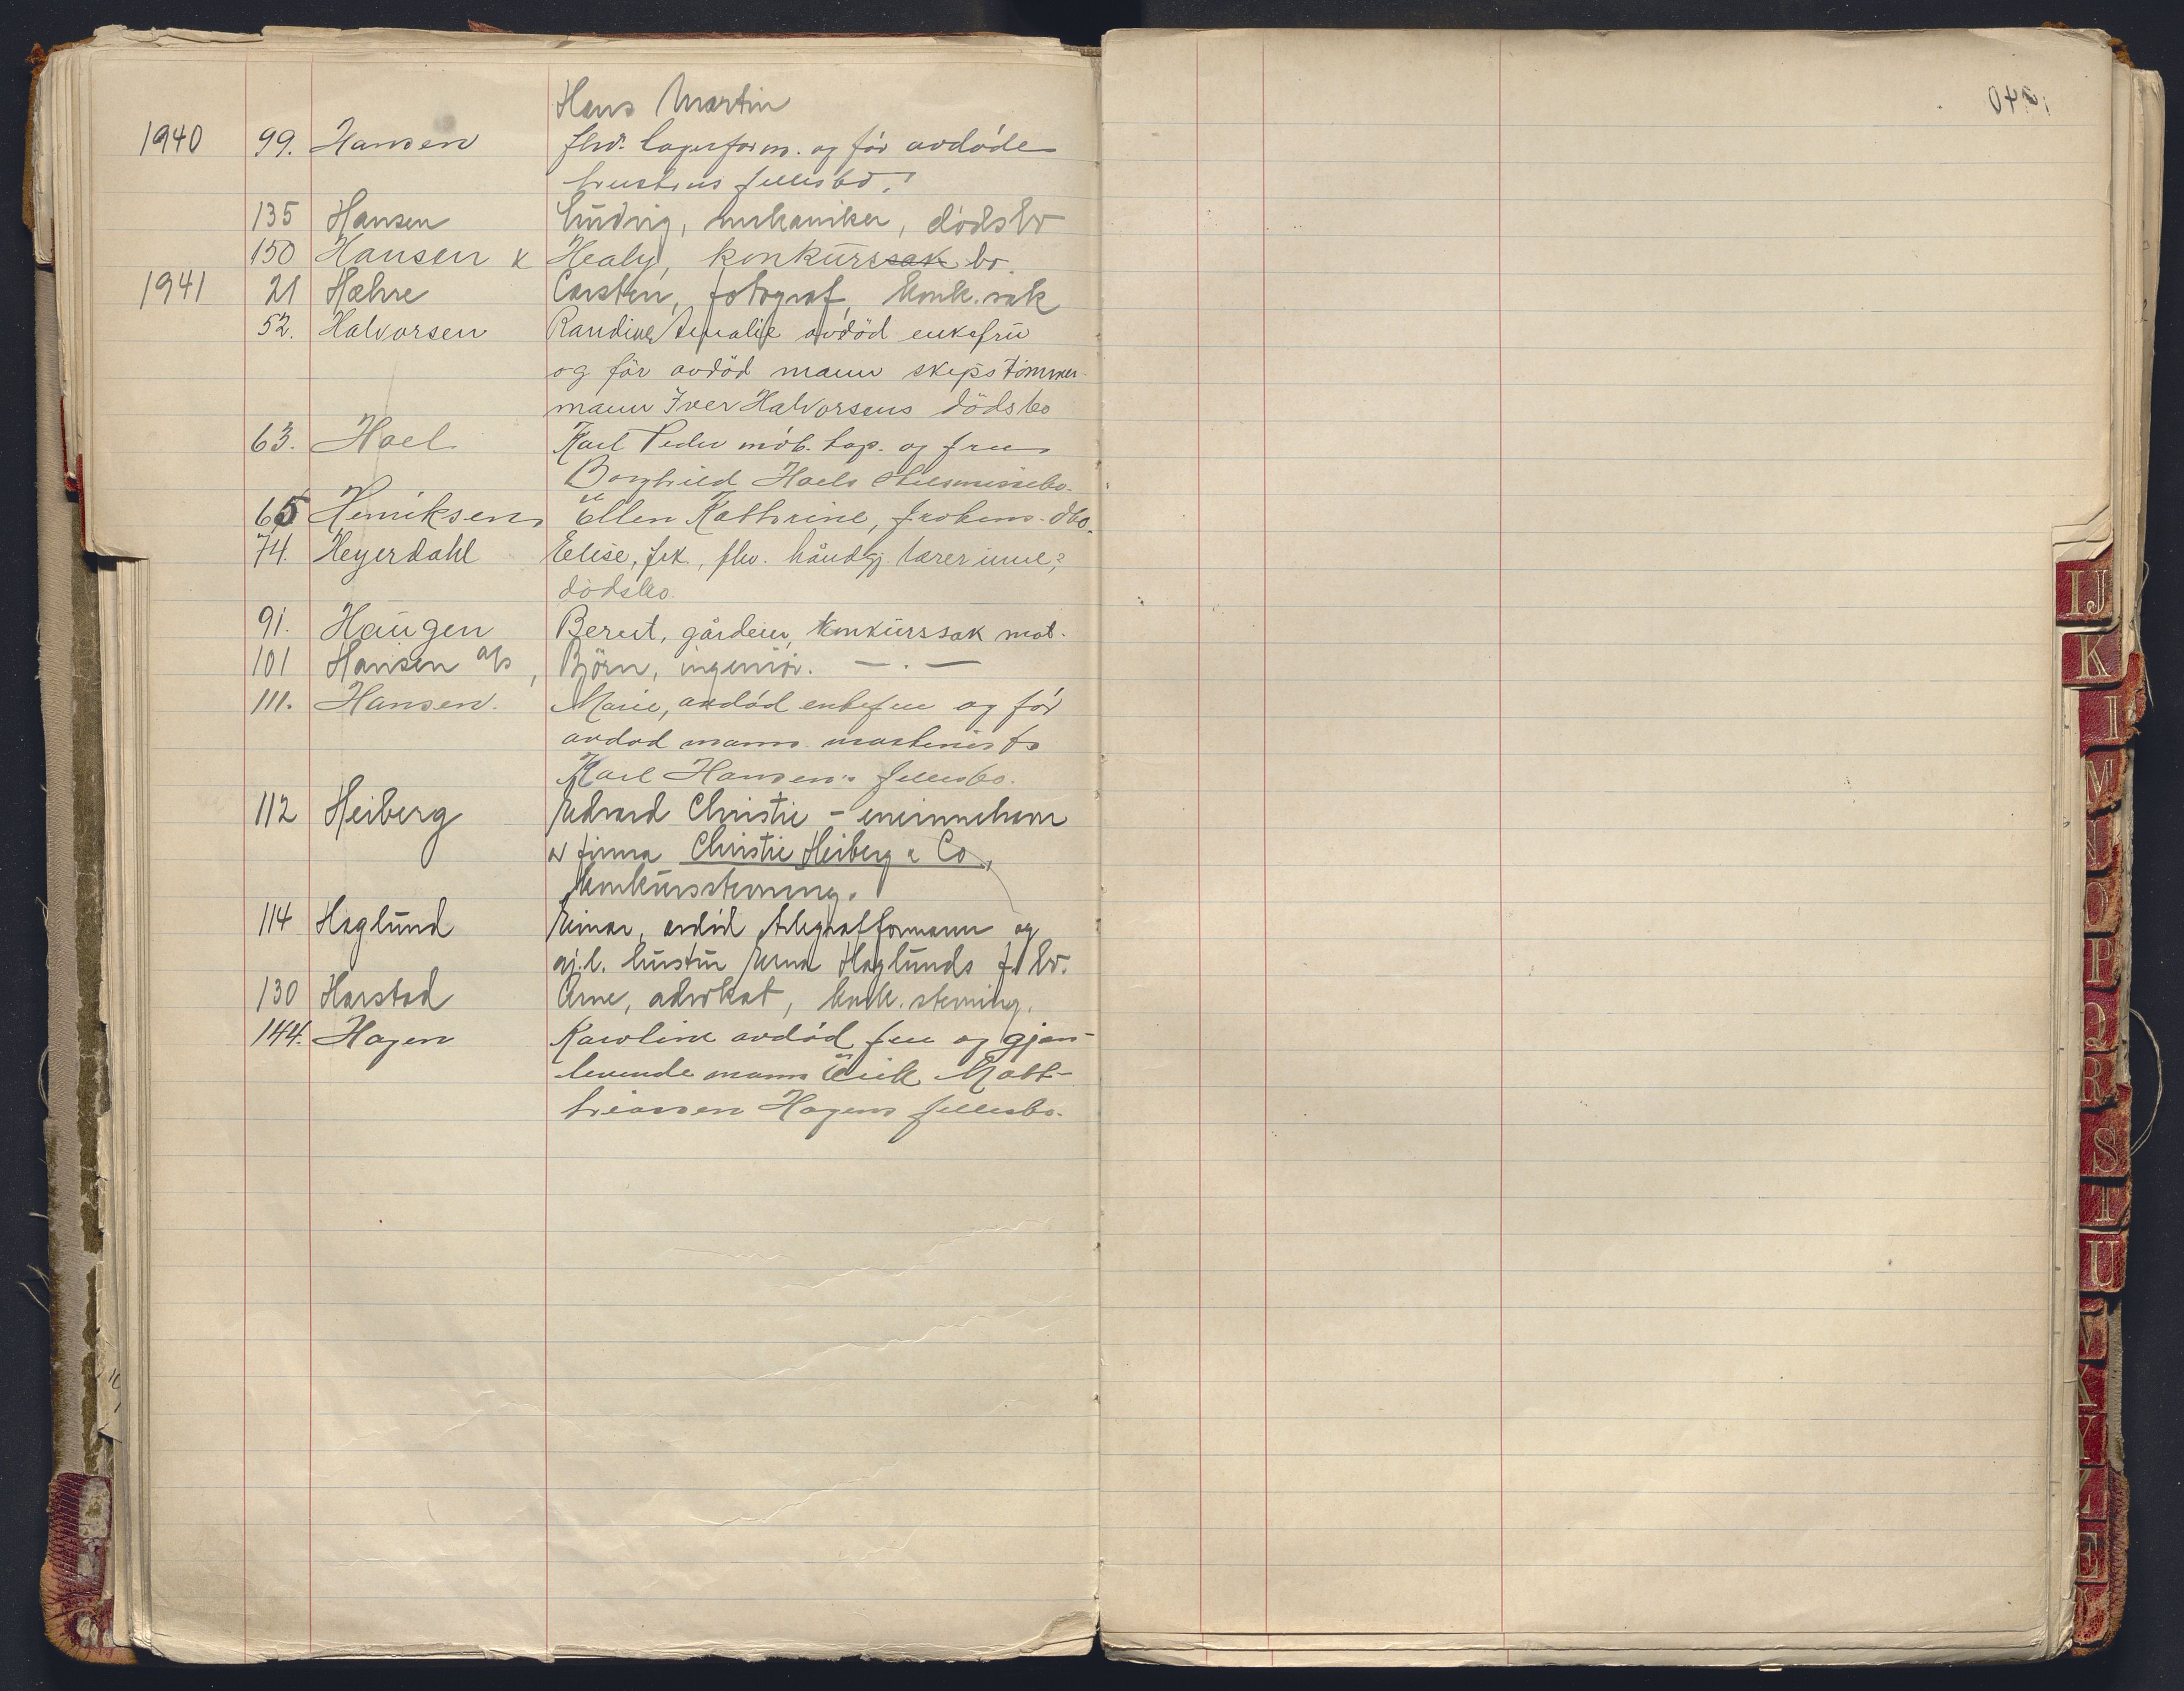 Hans Martin
1940 99. Hansen fhv. lagerform. og før avdøde
hustrus fellesbo.
135 Hansen Ludvig, mekaniker, dödsbo
150 Hansen & Healy, konkurssak bo.
1941 21 Hæhre Carsten, fotograf, konk.sak
52. Halvorsen Randine Amalie avdöd enkefru
og för avdöd mann skipstömmer-
mann Iver Halvorsens dödsbo
63. Hoel Karl Peder møb.tap. og frue
Borghild Hoels skilsmissebo.
65 Henriksen, Ellen Kathrine, frøkens dbo.
74. Heyerdahl Elise, frk., fhv. håndgj. lærerinne,
dödsbo.
91. Haugen Bernt, gårdeier, konkurssak mot.
101 Hansen a/s, Björn, ingeniör. — . —
111. Hansen. Marie, avdød enkefru og før
avdød mann maskinist
Karl Hansen's fellesbo.
112 Heiberg Edvard Christie - eneinnehaver
av firma Christie Heiberg & Co,
konkursstevning.
114 Haglund Einar, avdöd telegrafformann og
gj.l. hustru Erna Haglunds f.bo.
130 Harstad Arne, advokat, konk. stevning.
144. Hagen Karoline avdød frue og gjen-
levende mann Erik Matt-
hiassen Hagens fellesbo.
IJ
K
M
N
O
P
Q
R
S
T
U
V
X
Y
Z
Æ
Ø